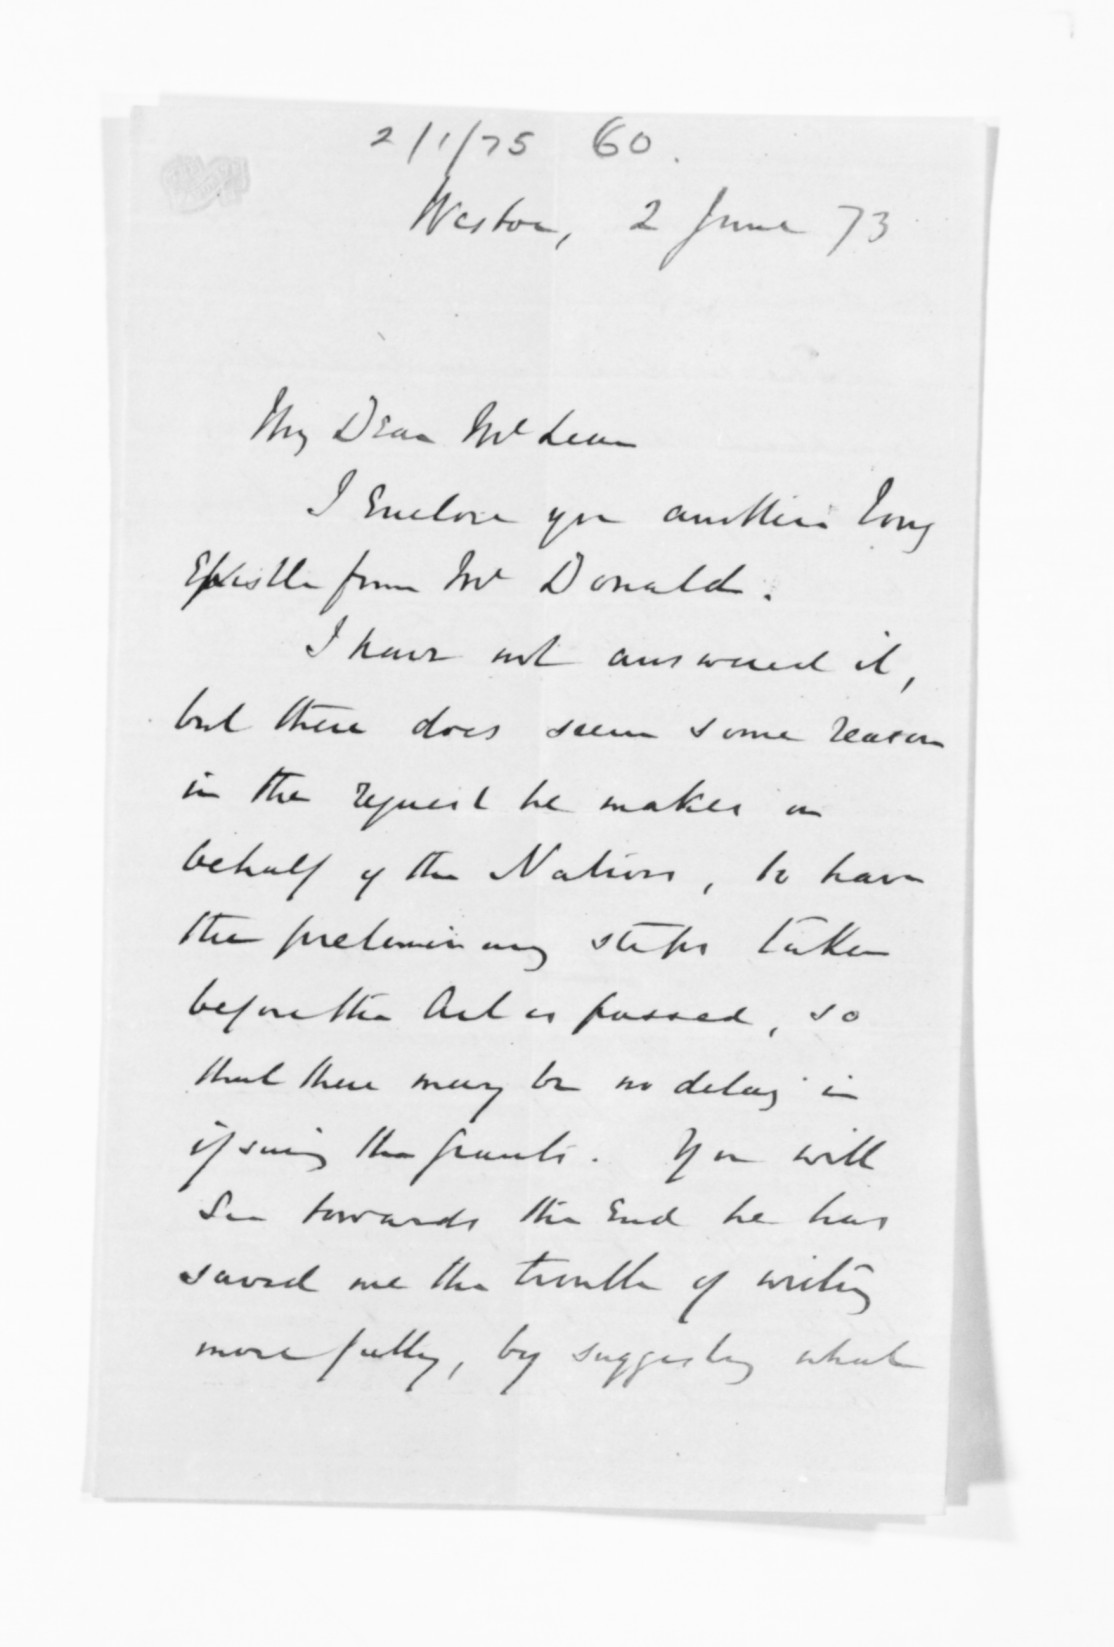 2/1/75 60.
Weston, 2 June 73
My Dear McLean
I Enclose you another long
Epistle from Mr Donald.
I have not answered it,
but there does seem some reason
in the request he makes on
behalf of the Natives, to have
the preleminary steps taken
before the Act is passed, so
that there may be no delay in
issuing the grants. You will
see towards the End he has
saved me the trouble of writing
more fully, by suggesting what